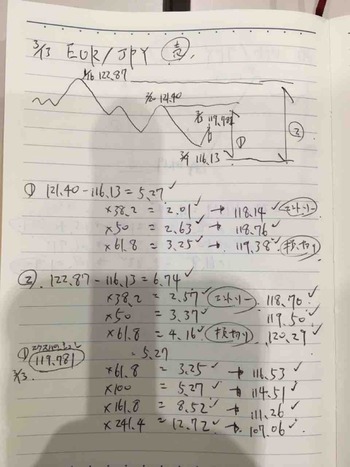 3/13 EUR/JPY 売
122.87
121.40
116.13 ①
②
① 121.40 - 116.13 = 5.27 ✓
×38.2 = 2.01 ✓ → 118.14 ✓ エントリー
×50 = 2.63 ✓ → 118.76 ✓
×61.8 = 3.25 ✓ → 119.38 ✓ 損切り
②. 122.87 - 116.13 = 6.74 ✓
×38.2 = 2.57 ✓ エントリー 118.70 ✓
×50 = 3.37 ✓ 119.50 ✓
×61.8 = 4.16 ✓ 損切り 120.29 ✓
① エクスパンション = 5.27
119.781
3/13. ×61.8 = 3.25 ✓ → 116.53 ✓
×100 = 5.27 ✓ → 114.51 ✓
×161.8 = 8.52 ✓ → 111.26 ✓
×241.4 = 12.72 ✓ → 107.06 ✓